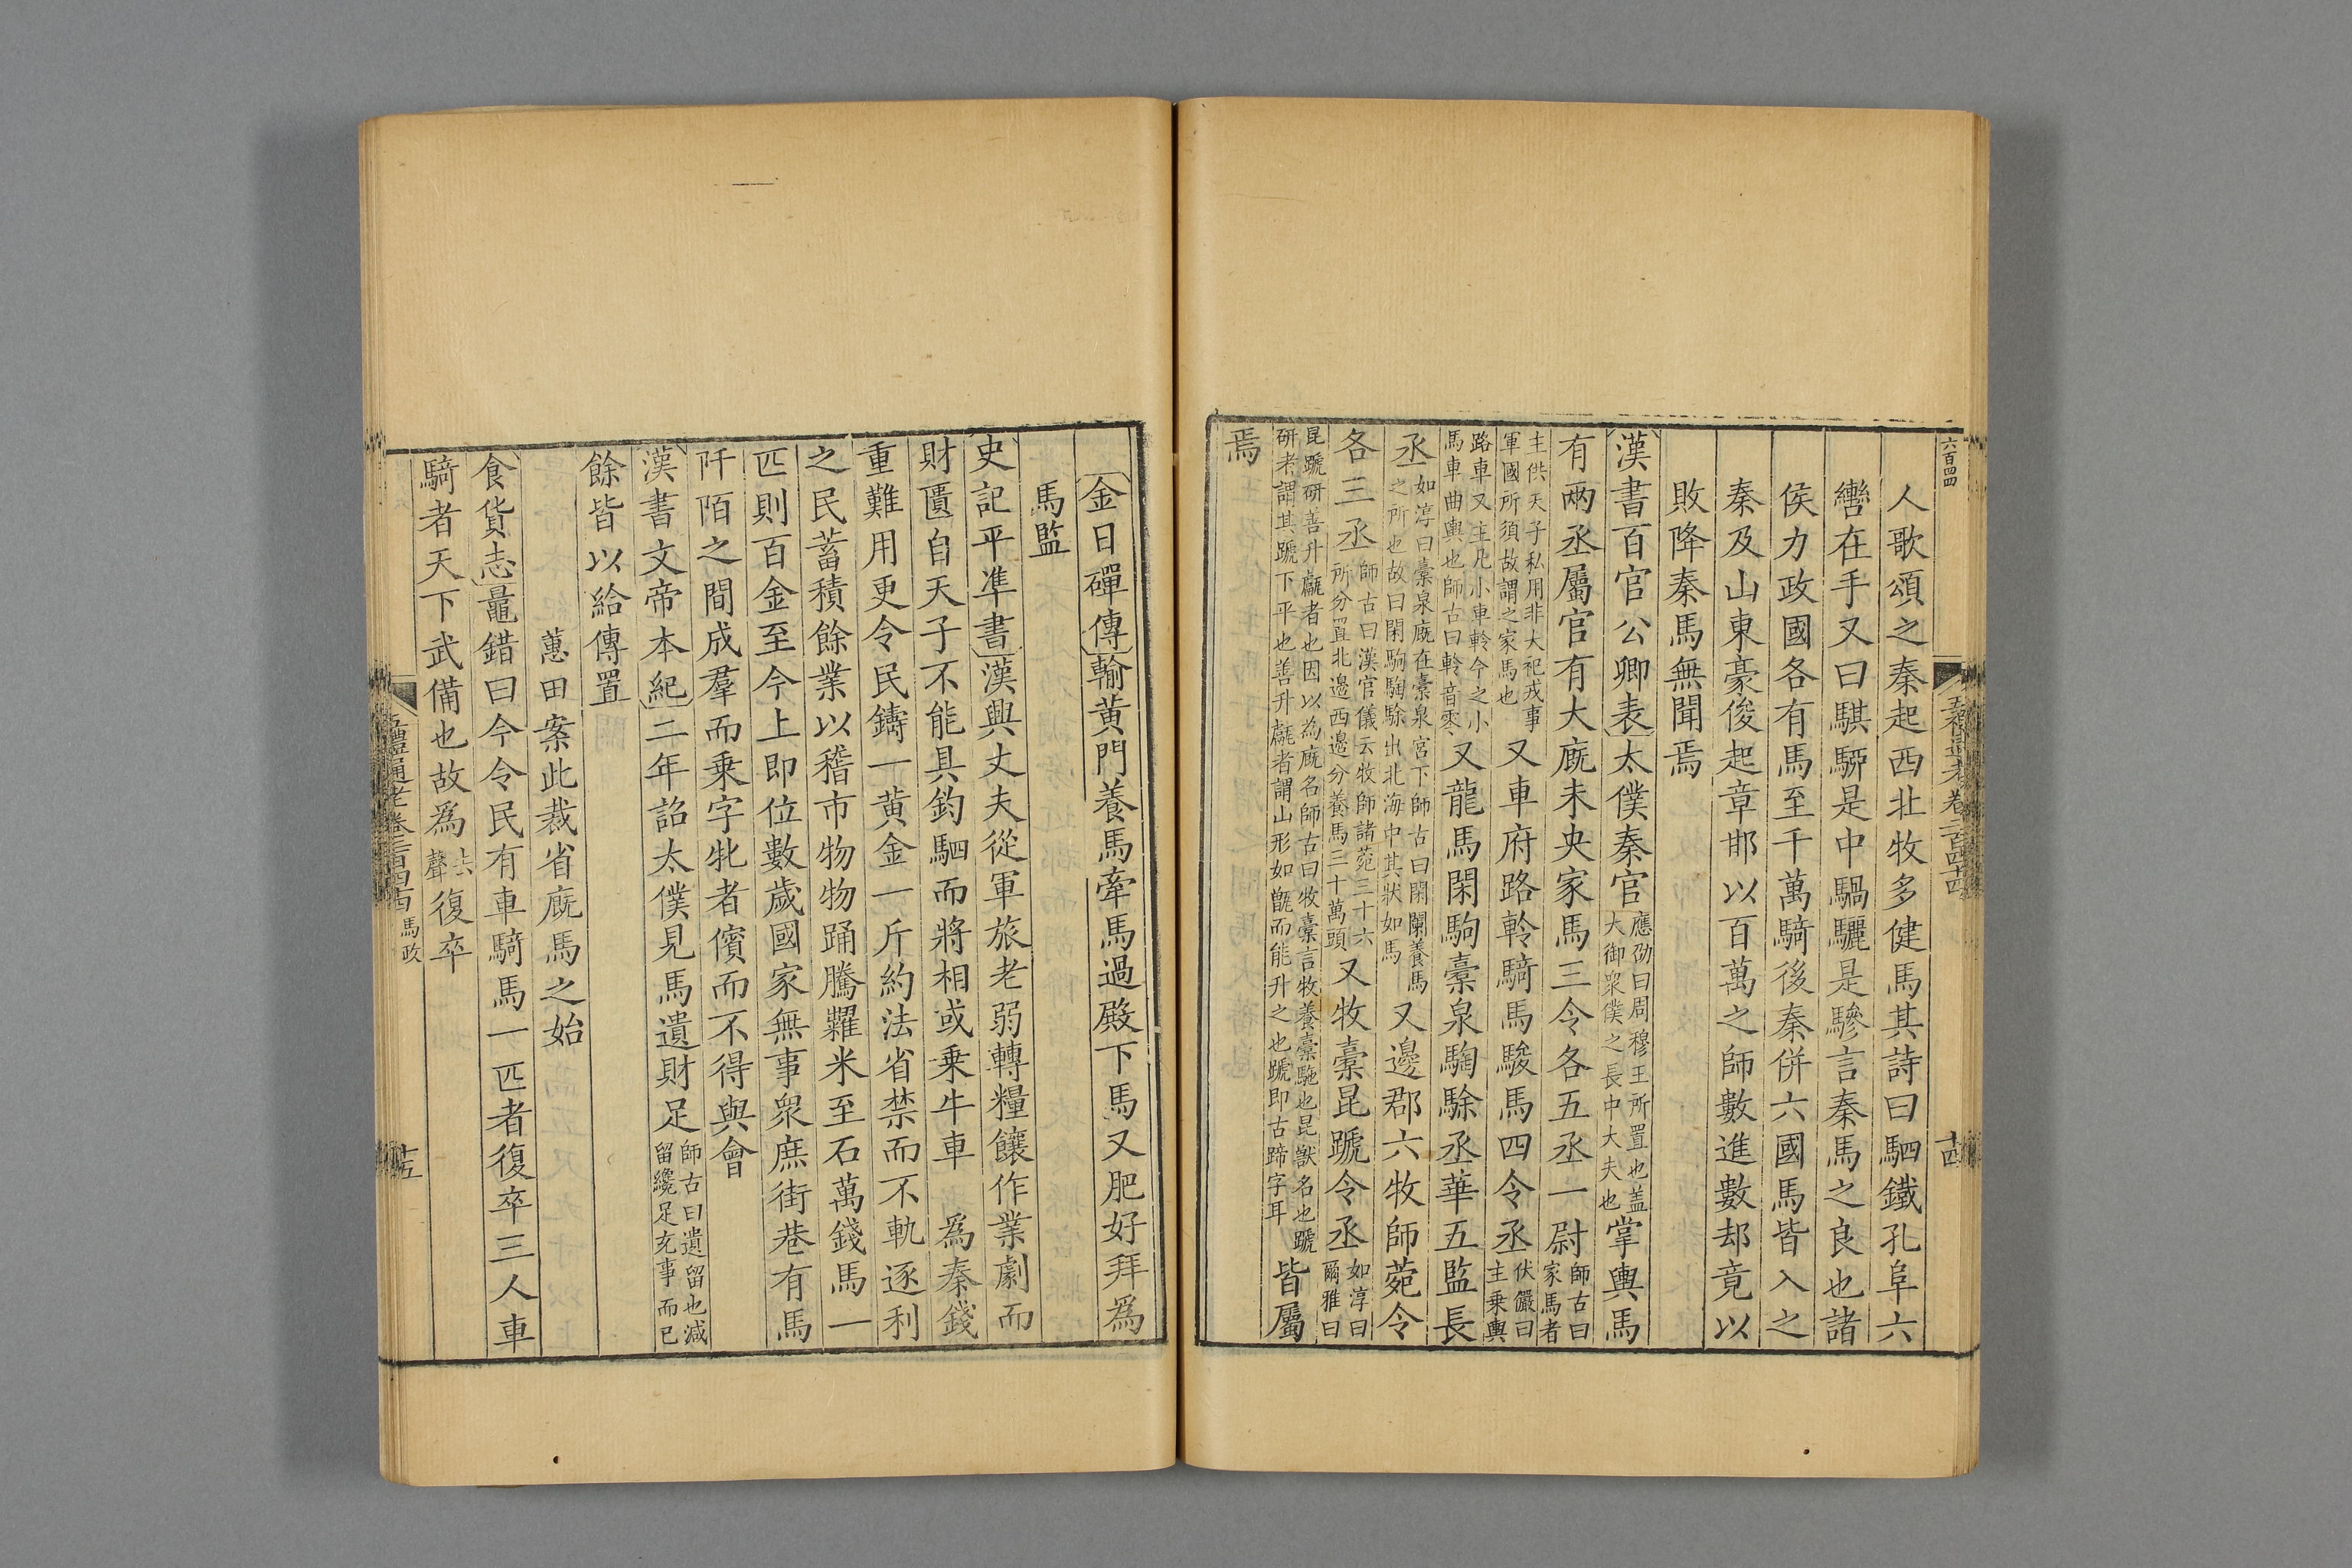 六百四四
五禮通考卷二百四十四
十四
人歌頌之秦起西北牧多健馬其詩曰駟鐵孔阜六
轡在手又曰騏騮是中騧驪是驂言秦馬之良也諸
侯力政國各有馬至千萬騎後秦併六國馬皆入之
秦及山東豪俊起章邯以百萬之師數進數却竟以
敗降秦馬無聞焉
漢書百官公卿表太僕秦官應劭曰周穆王所置也盖大御衆僕之長中大夫也掌輿馬
有兩丞屬官有大廐未央家馬三令各五丞一尉師古曰家馬者
主供天子私用非大祀戎事軍國所須故謂之家馬也又車府路軨騎馬駿馬四令丞伏儼曰主乗輿
路車又主凡小車軨今之小馬車曲輿也師古曰軨音零又龍馬閑駒橐泉騊駼丞華五監長
丞如淳曰橐泉廐在橐泉宮下師古曰閑闌養馬之所也故曰閑駒騊駼出北海中其狀如馬又邊郡六牧師菀令
各三丞師古曰漢官儀云牧師諸菀三十六所分置北邊西邊分養馬三十萬頭又牧橐昆蹏令丞如淳曰爾雅曰
昆蹏研善升甗者也因以為廐名師古曰牧橐言牧養橐駞也昆獸名也蹏研者謂其蹏下平也善升甗者謂山形如甑而能升之也蹏即古蹄字耳皆屬
焉
金日磾傳輸黄門養馬牽馬過殿下馬又肥好拜為
馬監
史記平準書漢興丈夫從軍旅老弱轉糧饟作業劇而
財匱自天子不能具鈞駟而將相或乗牛車 為秦錢
重難用更令民鑄一黄金一斤約法省禁而不軌逐利
之民蓄積餘業以稽市物物踊騰糶米至石萬錢馬一
匹則百金至今上即位數歲國家無事衆庶街巷有馬
阡陌之間成羣而乗字牝者儐而不得與會
漢書文帝本紀二年詔太僕見馬遺財足師古曰遺留也減留纔足充事而已
餘皆以給傳置
蕙田案此裁省廐馬之始
食貨志鼂錯曰今令民有車騎馬一匹者復卒三人車
騎者天下武備也故為去聲復卒
五禮通考卷二百四十四 馬政
十五